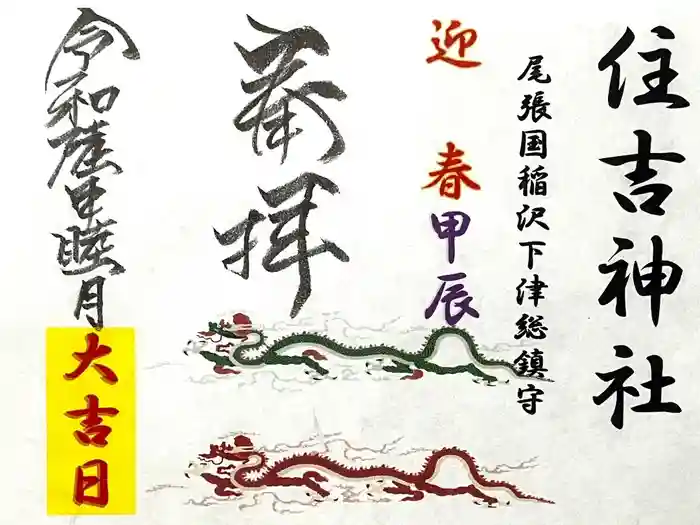 住吉神社
尾張国稲沢下津総鎮守
迎春
甲辰
奉拝
睦月
大吉日